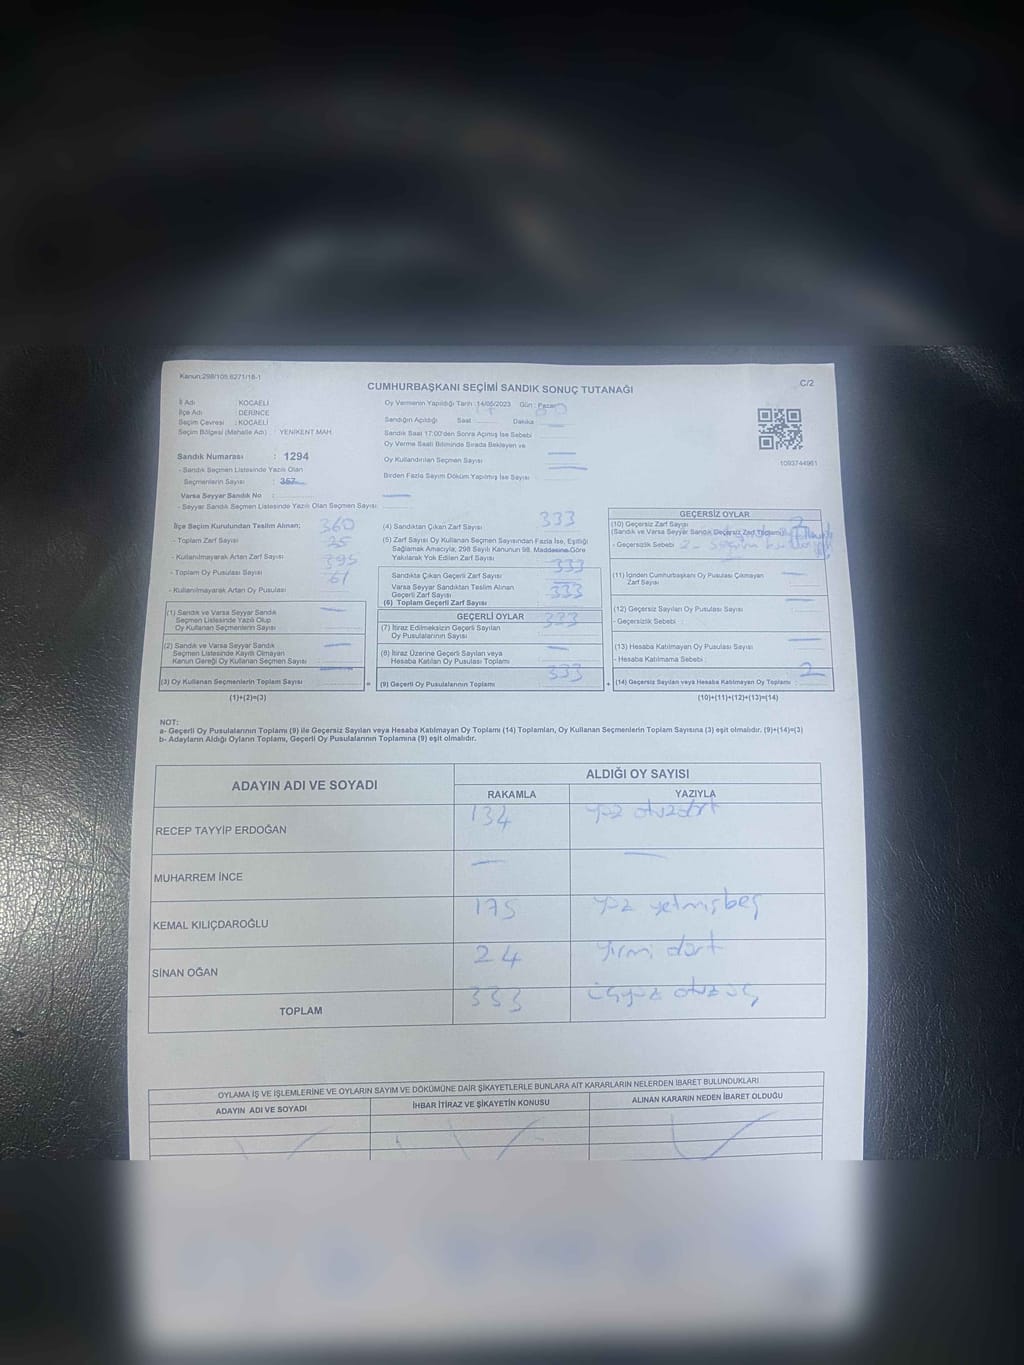 Kanun:298/105;6271/16-1
C/2
CUMHURBAŞKANI SEÇİMİ SANDIK SONUÇ TUTANAĞI
İl Adı : KOCAELİ
İlçe Adı : DERİNCE
Seçim Çevresi : KOCAELİ
Seçim Bölgesi (Mahalle Adı) : YENİKENT MAH.
Sandık Numarası : 1294
- Sandık Seçmen Listesinde Yazılı Olan
Seçmenlerin Sayısı : 357
Varsa Seyyar Sandık No :
- Seyyar Sandık Seçmen Listesinde Yazılı Olan Seçmen Sayısı :
Oy Vermenin Yapıldığı Tarih :14/05/2023 Gün : Pazar
Sandığın Açıldığı Saat 17 Dakika 00
Sandık Saat 17:00'den Sonra Açılmış İse Sebebi
Oy Verme Saati Bitiminde Sırada Bekleyen ve
Oy Kullandırılan Seçmen Sayısı
Birden Fazla Sayım Döküm Yapılmış İse Sayısı
1093744961
İlçe Seçim Kurulundan Teslim Alınan; 360
- Toplam Zarf Sayısı 25
- Kullanılmayarak Artan Zarf Sayısı 395
- Toplam Oy Pusulası Sayısı 61
- Kullanılmayarak Artan Oy Pusulası
(1) Sandık ve Varsa Seyyar Sandık
Seçmen Listesinde Yazılı Olup
Oy Kullanan Seçmenlerin Sayısı
(2) Sandık ve Varsa Seyyar Sandık
Seçmen Listesinde Kayıtlı Olmayan
Kanun Gereği Oy Kullanan Seçmen Sayısı
(3) Oy Kullanan Seçmenlerin Toplam Sayısı
(1)+(2)=(3)
(4) Sandıktan Çıkan Zarf Sayısı 333
(5) Zarf Sayısı Oy Kullanan Seçmen Sayısından Fazla İse, Eşitliği
Sağlamak Amacıyla, 298 Sayılı Kanunun 98. Maddesine Göre
Yakılarak Yok Edilen Zarf Sayısı
333
Sandıkta Çıkan Geçerli Zarf Sayısı
Varsa Seyyar Sandıktan Teslim Alınan
Geçerli Zarf Sayısı 333
(6) Toplam Geçerli Zarf Sayısı
GEÇERLİ OYLAR
333
(7) İtiraz Edilmeksizin Geçerli Sayılan
Oy Pusulalarının Sayısı
(8) İtiraz Üzerine Geçerli Sayılan veya
Hesaba Katılan Oy Pusulası Toplamı
333
= (9) Geçerli Oy Pusulalarının Toplamı
GEÇERSİZ OYLAR
(10) Geçersiz Zarf Sayısı 2
(Sandık ve Varsa Seyyar Sandık Geçersiz Zarf Toplamı)
- Geçersizlik Sebebi 2 -
(11) İçinden Cumhurbaşkanı Oy Pusulası Çıkmayan
Zarf Sayısı
(12) Geçersiz Sayılan Oy Pusulası Sayısı
- Geçersizlik Sebebi :
(13) Hesaba Katılmayan Oy Pusulası Sayısı
- Hesaba Katılmama Sebebi :
2
+ (14) Geçersiz Sayılan veya Hesaba Katılmayan Oy Toplamı
(10)+(11)+(12)+(13)=(14)
NOT:
a- Geçerli Oy Pusulalarının Toplamı (9) ile Geçersiz Sayılan veya Hesaba Katılmayan Oy Toplamı (14) Toplamları, Oy Kullanan Seçmenlerin Toplam Sayısına (3) eşit olmalıdır. (9)+(14)=(3)
b- Adayların Aldığı Oyların Toplamı, Geçerli Oy Pusulalarının Toplamına (9) eşit olmalıdır.
ADAYIN ADI VE SOYADI
ALDIĞI OY SAYISI
RAKAMLA YAZIYLA
RECEP TAYYİP ERDOĞAN 134 yüz otuzdört
MUHARREM İNCE
KEMAL KILIÇDAROĞLU 175 yüz yetmişbeş
SİNAN OĞAN 24 yirmi dört
TOPLAM 333 üçyüz otuz üç
OYLAMA İŞ VE İŞLEMLERİNE VE OYLARIN SAYIM VE DÖKÜMÜNE DAİR ŞİKAYETLERLE BUNLARA AİT KARARLARIN NELERDEN İBARET BULUNDUKLARI
ADAYIN ADI VE SOYADI İHBAR İTİRAZ VE ŞİKAYETİN KONUSU ALINAN KARARIN NEDEN İBARET OLDUĞU